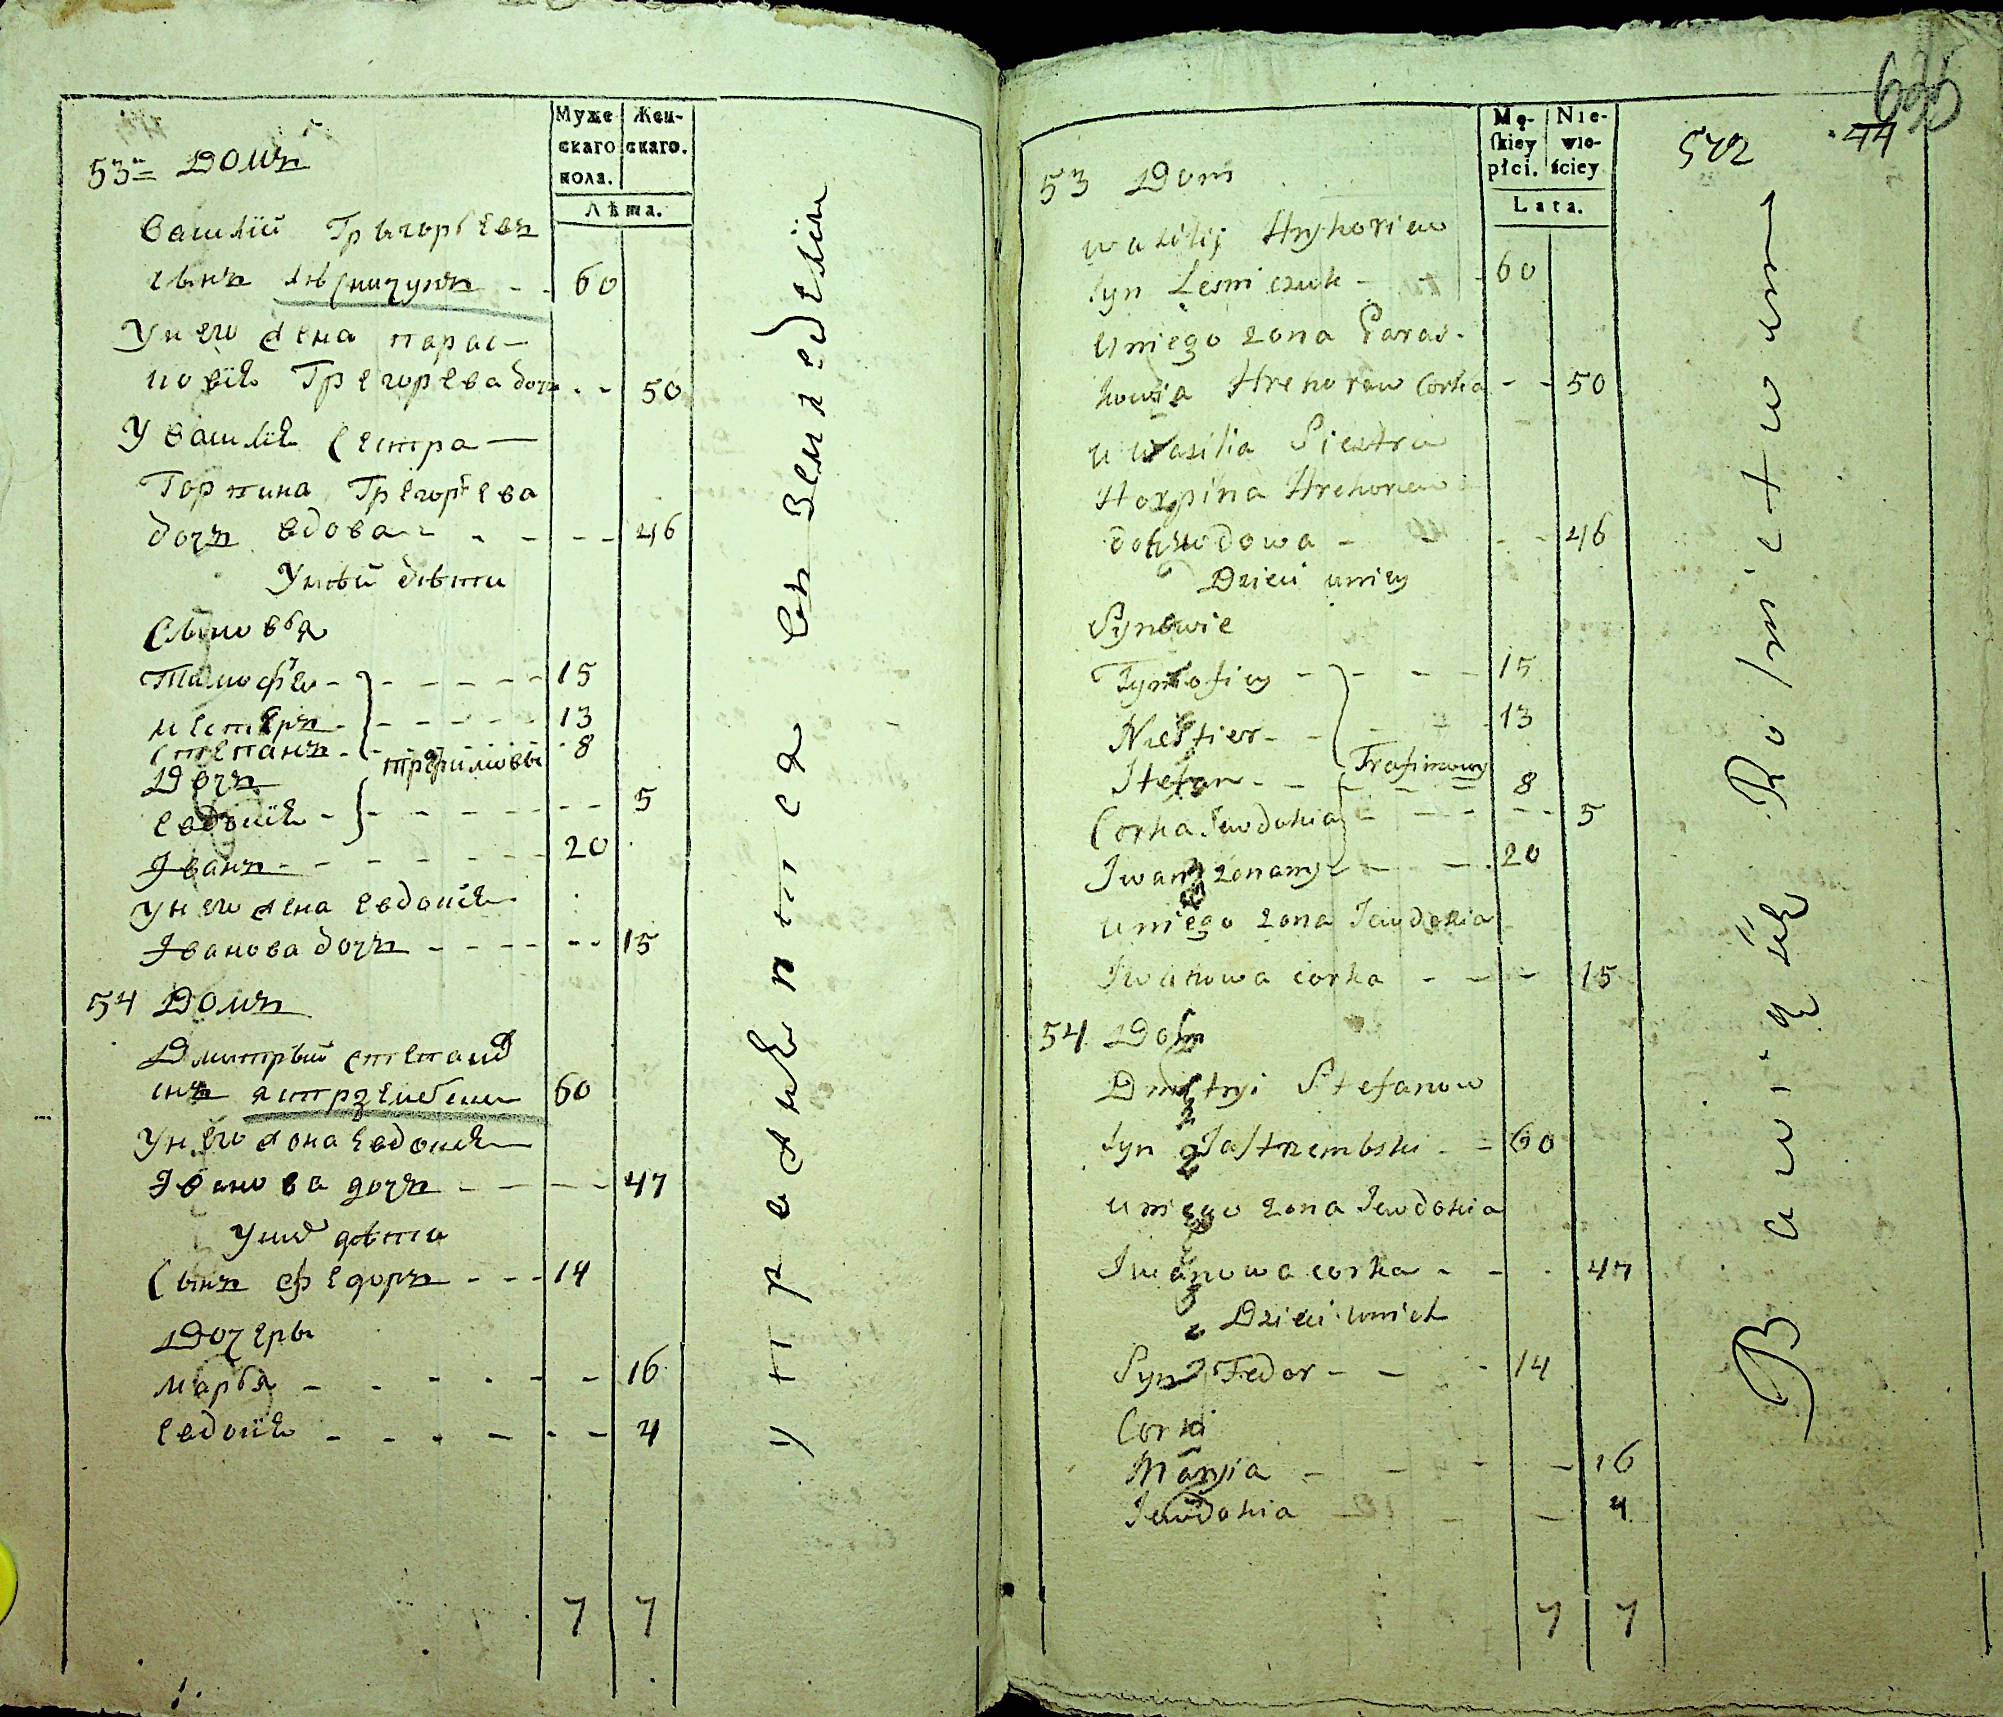 Муже
скаго
пола.
Жен-
скаго.
Лѣта.
53 Домъ
Василій Григорьевъ
сынъ Лѣсничукъ - - 60
У него жена Парас-
ковія Грегорева дочъ - - 50
У Василія сестра —
Горпина Грегорьева
дочъ вдова - - - - 46
У ней дѣти
Сыновья
Тимофѣй - - - - - - 15
Нестеръ - - - - - 13
Степанъ - Трофимовы - 8
Дочъ
Евдокія - - - - - - - 5
Іванъ - - - - - - - 20
У него жена Евдокія
Іванова дочъ - - - - - - 15
54 Домъ
Дмитрый Степанов
сынъ Ястрзембски 60
У него жона Евдокія
Іванова дочъ - - - - 47
У них дѣти
Сынъ Федоръ - - - 14
Дочеры
Марья - - - - - - 16
Евдокія - - - - - - 4
7 7
упражняется въ земледеліи
625
44
572
Mę-
skiey
płci.
Nie-
wie-
ściey
Lata.
53 Dom
Wasilij Hryhoriew
syn Leśniczuk - - - 60
U niego żona Paras-
kowia Hrehorew corka - - 50
U Wasilia Siestra
Horpina Hrehorewa
doch wdowa - - - - 46
Dzieci u niey
Synowie
Tymofiey - - - - 15
Niestier - - - - 13
Stefan - - Trafimowy 8
Corka Jewdokia - - - - 5
Iwan żonaty - - - 20
U niego żona Jewdokia
Iwanowa corka - - - 15
54 Dom
Dmitryi Stefanow
syn Jastrzembski - - 60
U niego żona Jewdokia
Iwanowa corka - - - 47
Dzieci u nich
Syn Fedor - - - 14
Corki
Maryia - - - - 16
Jewdokia - - - 4
7 7
Bawi się Rolnictwem